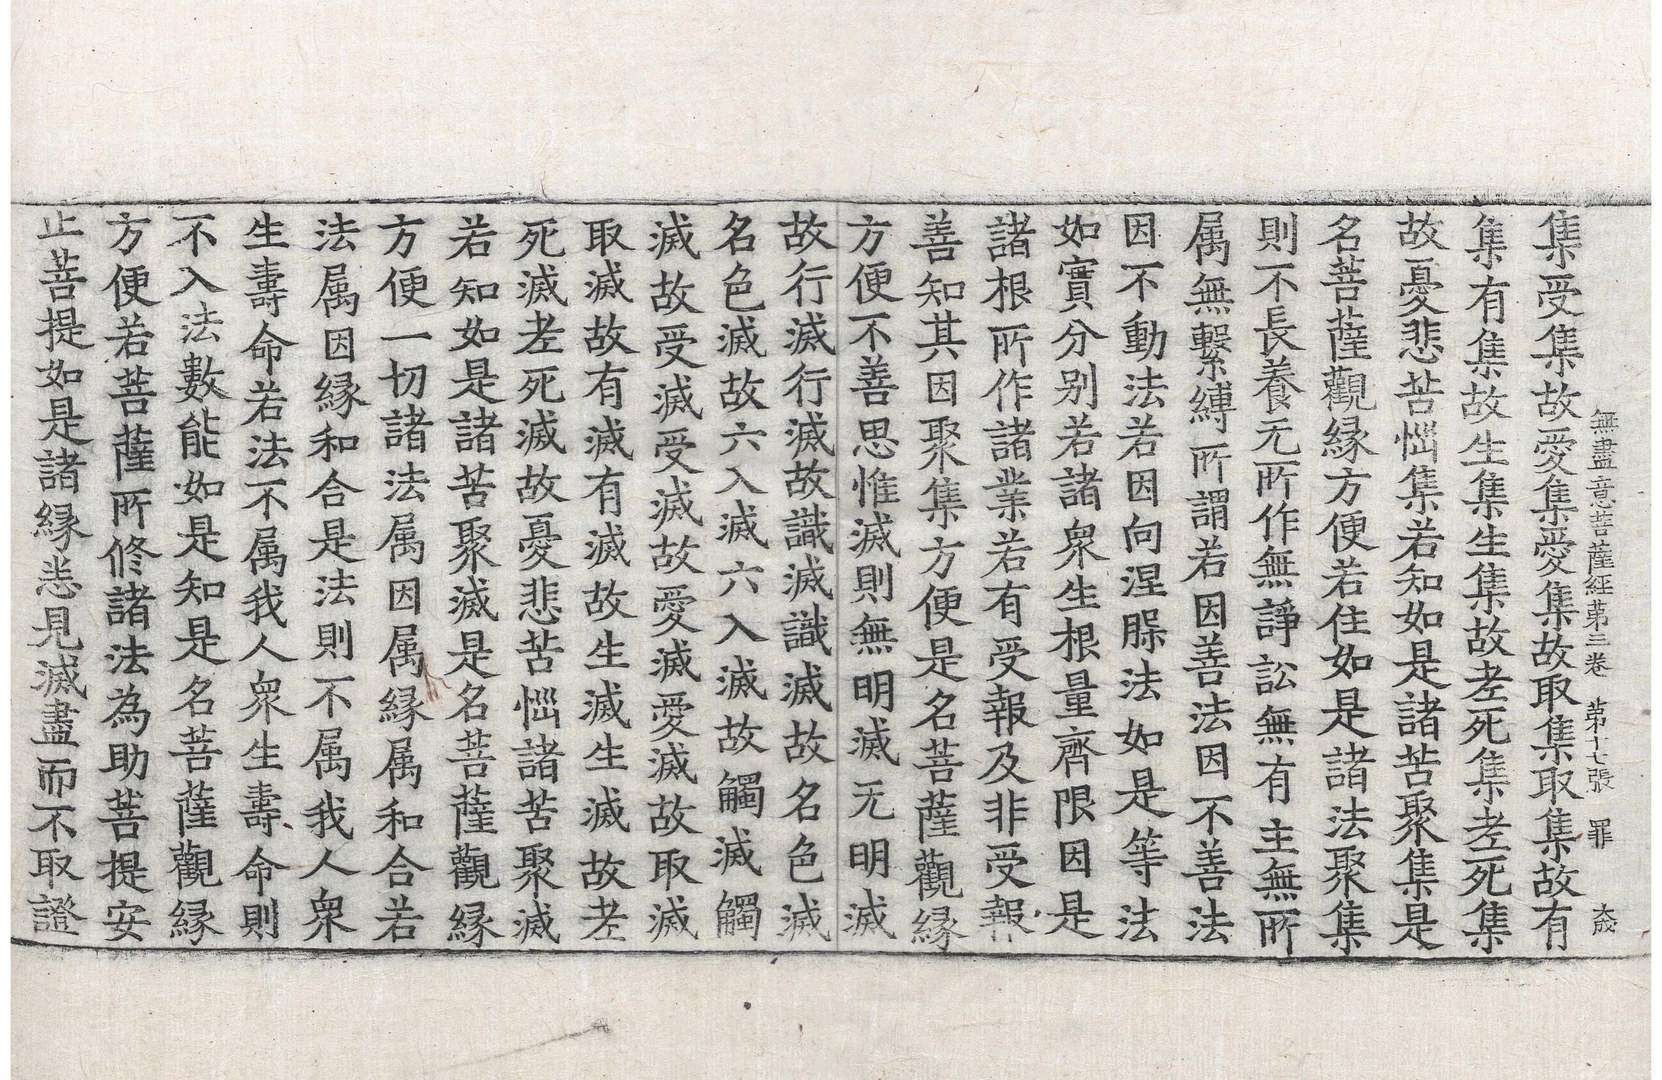 無盡意菩薩經第三卷 第十七張 罪 大成
集受集故愛集愛集故取集取集故有
集有集故生集生集故老死集老死集
故憂悲苦惱集若知如是諸苦聚集是
名菩薩觀縁方便若住如是諸法聚集
則不長養无所作無諍訟無有主無所
属無繫縛所謂若因善法因不善法
因不動法若因向涅槃法如是等法
如實分别若諸衆生根量齊限因是
諸根所作諸業若有受報及非受報
善知其因聚集方便是名菩薩觀縁
方便不善思惟滅則無明滅无明滅
故行滅行滅故識滅識滅故名色滅
名色滅故六入滅六入滅故觸滅觸
滅故受滅受滅故愛滅愛滅故取滅
取滅故有滅有滅故生滅生滅故老
死滅老死滅故憂悲苦惱諸苦聚滅
若知如是諸苦聚滅是名菩薩觀縁
方便一切諸法属因属縁属和合若
法属因縁和合是法則不属我人衆
生壽命若法不属我人衆生壽命則
不入法數能如是知是名菩薩觀縁
方便若菩薩所修諸法為助菩提安
止菩提如是諸縁悉見滅盡而不取證